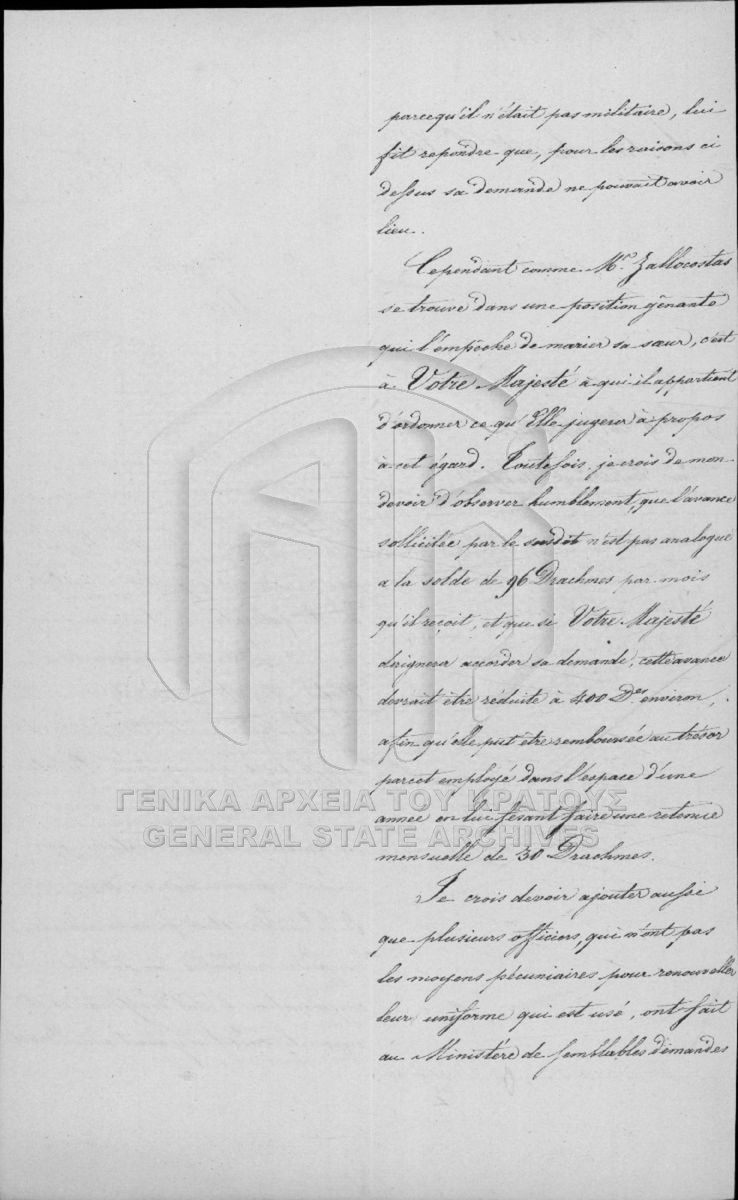 parcequ'il n'était pas militaire, lui
fit repondre que, pour les raisons ci
dessus sa demande ne pouvait avoir
lieu.
Cependant comme Mr. Zallocostas
se trouve dans une position gênante
qui l'empêche de marier sa sœur, c'est
à Votre Majesté à qui il appartient
d'ordonner ce qu'Elle jugera à propos
à cet égard. Toutefois je crois de mon
devoir d'observer humblement, que l'avance
sollicitée par le susdit n'est pas analogue
a la solde de 96 Drachmes par mois
qu'il reçoit, et que si Votre Majesté
daignera accorder sa demande, cette avance
devrait être réduite à 400 Des. environ,
afin qu'elle put être remboursée au trésor
par cet employé dans l'espace d'une
année en lui fesant faire une retenue
mensuelle de 30 Drachmes.
Je crois devoir ajouter aussi
que plusieurs officiers, qui n'ont pas
les moyens pécuniaires pour renouveller
leur uniforme qui est usé, ont fait
au Ministére de semblables demandes
ΓΕΝΙΚΑ ΑΡΧΕΙΑ ΤΟΥ ΚΡΑΤΟΥΣ
GENERAL STATE ARCHIVES